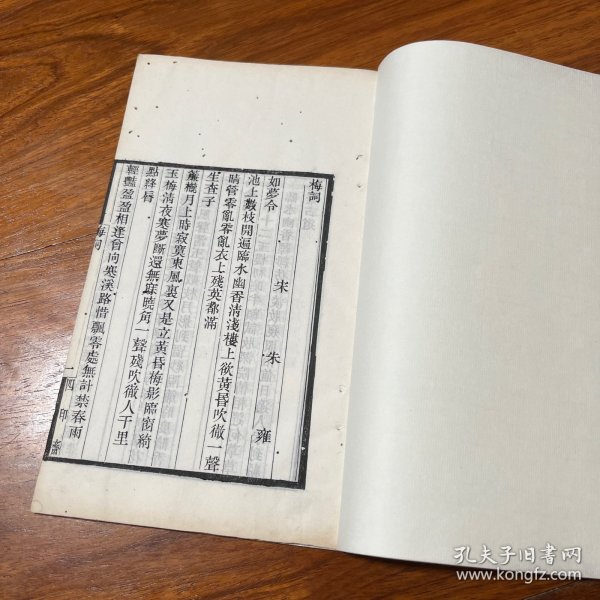 梅詞
宋 朱 雍
如夢令
池上數枝開遍臨水幽香清淺樓上欲黃昏吹徹一聲
晴管零亂零亂衣上殘英都滿
生查子
簾櫳月上時寂寞東風裏又是立黃昏梅影臨窗綺
玉梅清夜寒夢斷還無寐曉角一聲殘吹徹人千里
點絳唇
輕豔盈盈相逢曾向寒溪路惜飄零處無計禁春雨
梅詞
一 四印齋
孔夫子旧書网
www.kongfz.com